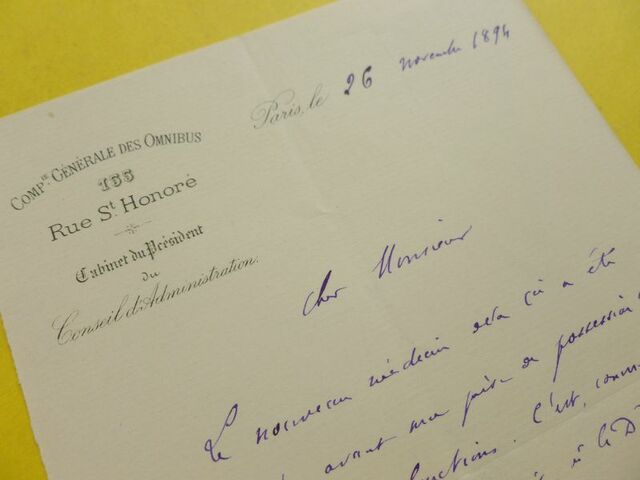 COMP.IE GÉNÉRALE DES OMNIBUS
155
Rue St. Honoré
Cabinet du Président
du
Conseil d'Administration.
Paris, le 26 novembre 1894
Cher Monsieur
Le nouveau médecin a été
avant ma prise de possession
fonctions. C'est, comm
à le D